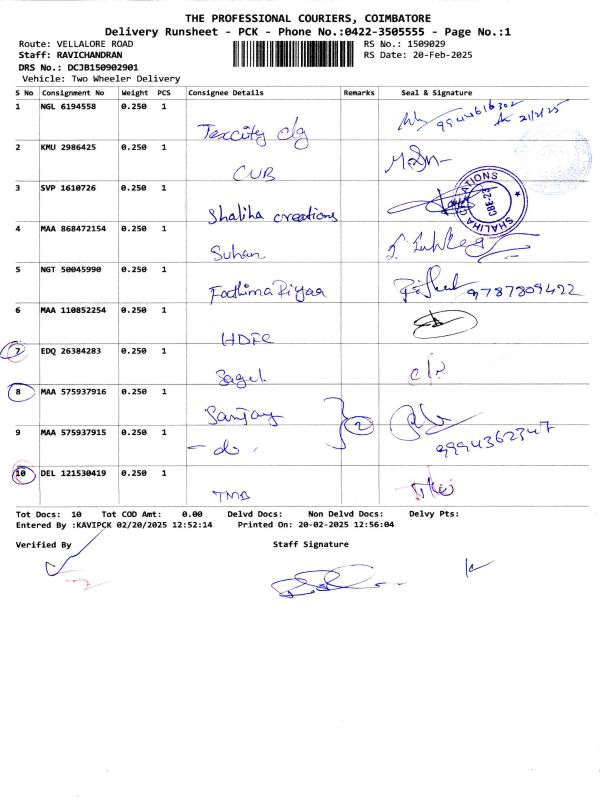 THE PROFESSIONAL COURIERS, COIMBATORE
Delivery Runsheet - PCK - Phone No.:0422-3505555 - Page No.:1
Route: VELLALORE ROAD RS No.: 1509029
Staff: RAVICHANDRAN RS Date: 20-Feb-2025
DRS No.: DCJB150902901
Vehicle: Two Wheeler Delivery
S No Consignment No Weight PCS Consignee Details Remarks Seal & Signature
1 NGL 6194558 0.250 1 Texcity clg 9944616302 21/2/25
2 KMU 2986425 0.250 1 CUB
3 SVP 1610726 0.250 1 Shaliha creations SHALIHA CREATIONS
4 MAA 868472154 0.250 1 Suhan
5 NGT 50045990 0.250 1 Fathima Riyaa 9787809422
6 MAA 110852254 0.250 1 HDFC
7 EDQ 26384283 0.250 1
8 MAA 575937916 0.250 1 Sanjay 2
9 MAA 575937915 0.250 1 - do . 9994362347
10 DEL 121530419 0.250 1 TMB
Tot Docs: 10 Tot COD Amt: 0.00 Delvd Docs: Non Delvd Docs: Delvy Pts:
Entered By :KAVIPCK 02/20/2025 12:52:14 Printed On: 20-02-2025 12:56:04
Verified By Staff Signature